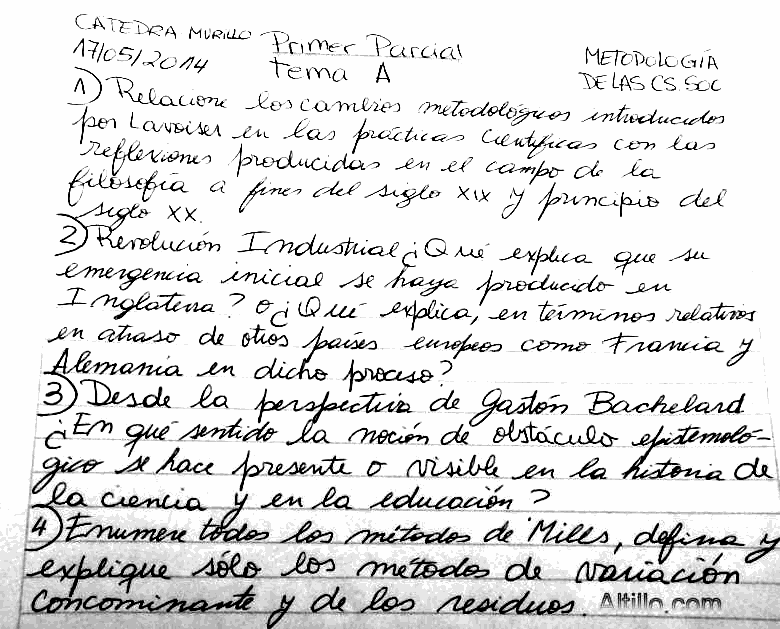 CATEDRA MURILLO Primer Parcial METODOLOGÍA
17/05/2014 Tema A DE LAS CS. SOC
1) Relacione los cambios metodológicos introducidos
por Lavoiser en las prácticas científicas con las
reflexiones producidas en el campo de la
filosofía a fines del siglo XIX y principio del
siglo XX.
2) Revolución Industrial ¿Qué explica que su
emergencia inicial se haya producido en
Inglaterra? O ¿Qué explica, en términos relativos
en atraso de otros países europeos como Francia y
Alemania en dicho proceso?
3) Desde la perspectiva de Gastón Bachelard
¿En qué sentido la noción de obstáculo epistemoló-
gico se hace presente o visible en la historia de
la ciencia y en la educación?
4) Enumere todos los métodos de Mills, defina y
explique sólo los métodos de variación
concominante y de los residuos. Altillo.com